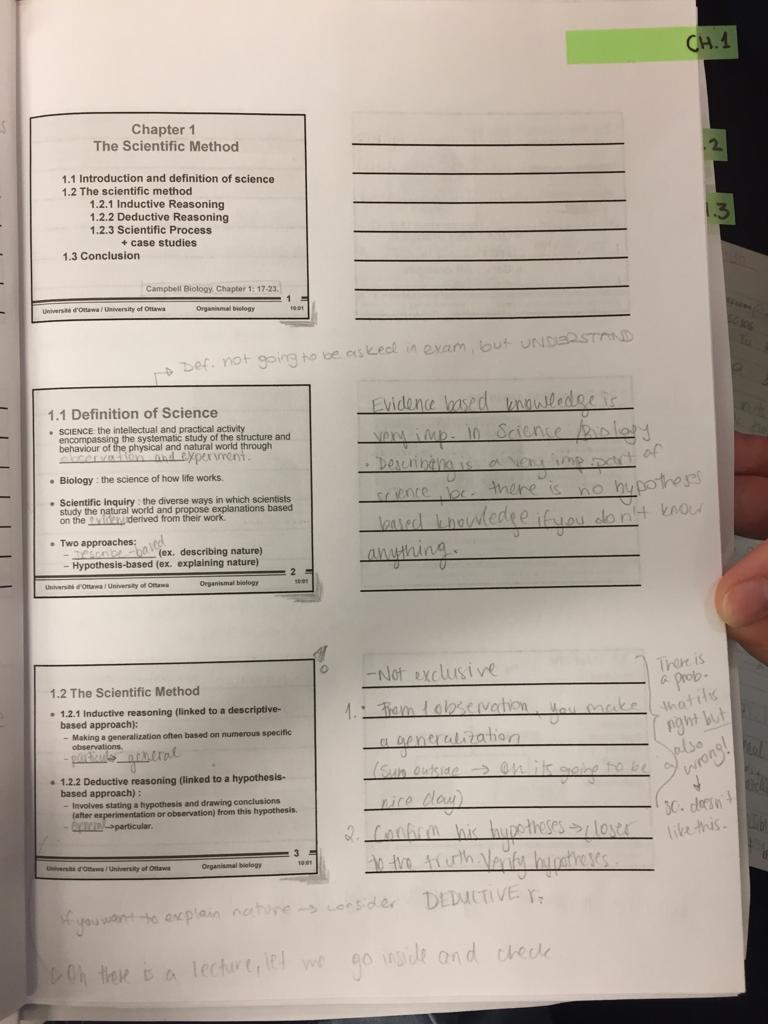 CH.1
.2
1.3
Chapter 1
The Scientific Method
1.1 Introduction and definition of science
1.2 The scientific method
1.2.1 Inductive Reasoning
1.2.2 Deductive Reasoning
1.2.3 Scientific Process
+ case studies
1.3 Conclusion
Campbell Biology. Chapter 1: 17-23.
1
Université d'Ottawa / University of Ottawa Organismal biology 10:01
→ Def. not going to be asked in exam, but UNDERSTAND
1.1 Definition of Science
• SCIENCE: the intellectual and practical activity
encompassing the systematic study of the structure and
behaviour of the physical and natural world through
observation and experiment.
• Biology : the science of how life works.
• Scientific inquiry : the diverse ways in which scientists
study the natural world and propose explanations based
on the evidence derived from their work.
• Two approaches:
– Describe-based (ex. describing nature)
– Hypothesis-based (ex. explaining nature)
2
Université d'Ottawa / University of Ottawa Organismal biology 10:01
Evidence based knowledge is
very imp. in Science/Biology
• Describing is a very imp. part of
science, bc. there is no hypotheses
based knowledge if you don't know
anything.
!
1.2 The Scientific Method
• 1.2.1 Inductive reasoning (linked to a descriptive-
based approach):
– Making a generalization often based on numerous specific
observations.
– general
• 1.2.2 Deductive reasoning (linked to a hypothesis-
based approach) :
– Involves stating a hypothesis and drawing conclusions
(after experimentation or observation) from this hypothesis.
– General→particular.
3
Université d'Ottawa / University of Ottawa Organismal biology 10:01
-Not exclusive
1. • From 1 observation, you make
a generalization
(Sun outside → Oh its going to be
nice day)
2. Confirm his hypotheses → closer
to the truth. Verify hypotheses.
There is
a prob.
that it is
right but
also a
wrong!
↓
sc. doesn't
like this.
If you want to explain nature → consider DEDUCTIVE r.
Oh there is a lecture, let me go inside and check